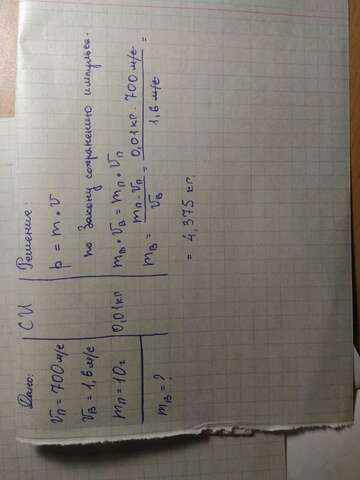 Дано:
Vп = 700 м/с
Vв = 1,6 м/с
mп = 10 г
mв = ?
СИ
0,01 кг
Решение:
p = m • v
по Закону сохранению импульса.
mв • Vв = mп • Vп
mв = mп • Vп / Vв = 0,01 кг • 700 м/с / 1,6 м/с =
= 4,375 кг.